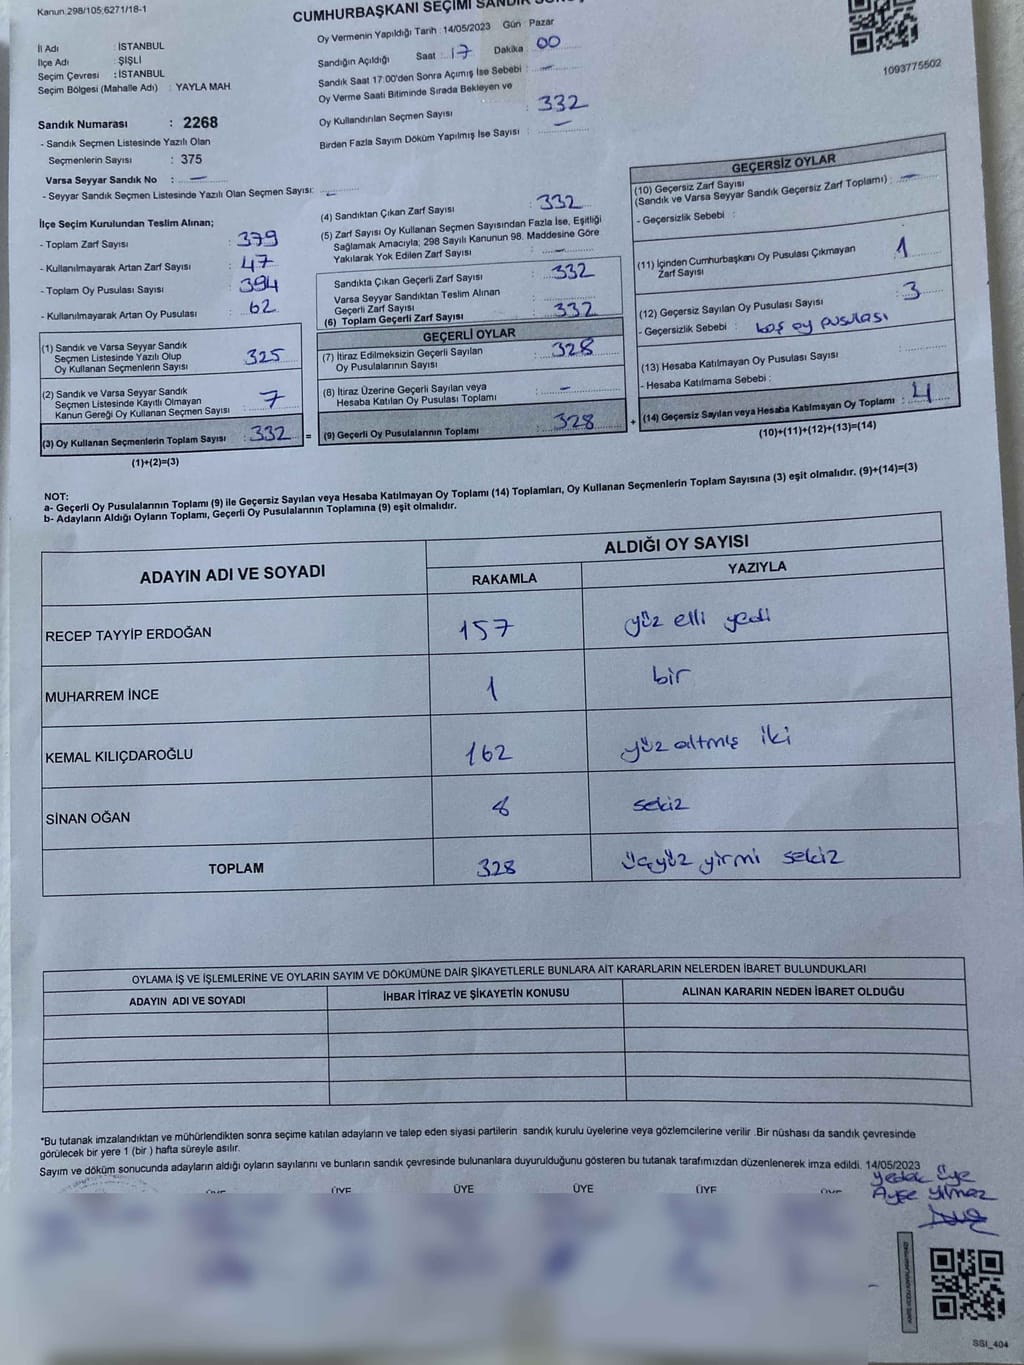 Kanun.298/105;6271/18-1
CUMHURBAŞKANI SEÇİMİ SANDIK
İl Adı : İSTANBUL
İlçe Adı : ŞİŞLİ
Seçim Çevresi : İSTANBUL
Seçim Bölgesi (Mahalle Adı) : YAYLA MAH.
Sandık Numarası : 2268
- Sandık Seçmen Listesinde Yazılı Olan
Seçmenlerin Sayısı : 375
Varsa Seyyar Sandık No : —
- Seyyar Sandık Seçmen Listesinde Yazılı Olan Seçmen Sayısı: —
Oy Vermenin Yapıldığı Tarih : 14/05/2023 Gün : Pazar
Sandığın Açıldığı Saat : 17 Dakika : 00
Sandık Saat 17:00'den Sonra Açımış İse Sebebi : —
Oy Verme Saati Bitiminde Sırada Bekleyen ve
Oy Kullandırılan Seçmen Sayısı : 332
Birden Fazla Sayım Döküm Yapılmış İse Sayısı : —
1093775502
İlçe Seçim Kurulundan Teslim Alınan;
- Toplam Zarf Sayısı : 379
- Kullanılmayarak Artan Zarf Sayısı : 47
- Toplam Oy Pusulası Sayısı : 394
- Kullanılmayarak Artan Oy Pusulası : 62
(1) Sandık ve Varsa Seyyar Sandık
Seçmen Listesinde Yazılı Olup
Oy Kullanan Seçmenlerin Sayısı : 325
(2) Sandık ve Varsa Seyyar Sandık
Seçmen Listesinde Kayıtlı Olmayan
Kanun Gereği Oy Kullanan Seçmen Sayısı : 7
(3) Oy Kullanan Seçmenlerin Toplam Sayısı : 332 =
(1)+(2)=(3)
(4) Sandıktan Çıkan Zarf Sayısı : 332
(5) Zarf Sayısı Oy Kullanan Seçmen Sayısından Fazla İse, Eşitliği
Sağlamak Amacıyla; 298 Sayılı Kanunun 98. Maddesine Göre
Yakılarak Yok Edilen Zarf Sayısı : —
Sandıkta Çıkan Geçerli Zarf Sayısı : 332
Varsa Seyyar Sandıktan Teslim Alınan
Geçerli Zarf Sayısı :
(6) Toplam Geçerli Zarf Sayısı : 332
GEÇERLİ OYLAR
(7) İtiraz Edilmeksizin Geçerli Sayılan
Oy Pusulalarının Sayısı : 328
(8) İtiraz Üzerine Geçerli Sayılan veya
Hesaba Katılan Oy Pusulası Toplamı : —
(9) Geçerli Oy Pusulalarının Toplamı : 328 +
GEÇERSİZ OYLAR
(10) Geçersiz Zarf Sayısı
(Sandık ve Varsa Seyyar Sandık Geçersiz Zarf Toplamı) : —
- Geçersizlik Sebebi :
(11) İçinden Cumhurbaşkanı Oy Pusulası Çıkmayan
Zarf Sayısı : 1
(12) Geçersiz Sayılan Oy Pusulası Sayısı : 3
- Geçersizlik Sebebi : boş oy pusulası
(13) Hesaba Katılmayan Oy Pusulası Sayısı :
- Hesaba Katılmama Sebebi :
(14) Geçersiz Sayılan veya Hesaba Katılmayan Oy Toplamı : 4
(10)+(11)+(12)+(13)=(14)
NOT:
a- Geçerli Oy Pusulalarının Toplamı (9) ile Geçersiz Sayılan veya Hesaba Katılmayan Oy Toplamı (14) Toplamları, Oy Kullanan Seçmenlerin Toplam Sayısına (3) eşit olmalıdır. (9)+(14)=(3)
b- Adayların Aldığı Oyların Toplamı, Geçerli Oy Pusulalarının Toplamına (9) eşit olmalıdır.
ADAYIN ADI VE SOYADI ALDIĞI OY SAYISI
RAKAMLA YAZIYLA
RECEP TAYYİP ERDOĞAN 157 yüz elli yedi
MUHARREM İNCE 1 bir
KEMAL KILIÇDAROĞLU 162 yüz altmış iki
SİNAN OĞAN 8 sekiz
TOPLAM 328 üçyüz yirmi sekiz
OYLAMA İŞ VE İŞLEMLERİNE VE OYLARIN SAYIM VE DÖKÜMÜNE DAİR ŞİKAYETLERLE BUNLARA AİT KARARLARIN NELERDEN İBARET BULUNDUKLARI
ADAYIN ADI VE SOYADI İHBAR İTİRAZ VE ŞİKAYETİN KONUSU ALINAN KARARIN NEDEN İBARET OLDUĞU
*Bu tutanak imzalandıktan ve mühürlendikten sonra seçime katılan adayların ve talep eden siyasi partilerin sandık kurulu üyelerine veya gözlemcilerine verilir .Bir nüshası da sandık çevresinde
görülecek bir yere 1 (bir ) hafta süreyle asılır.
Sayım ve döküm sonucunda adayların aldığı oyların sayılarını ve bunların sandık çevresinde bulunanlara duyurulduğunu gösteren bu tutanak tarafımızdan düzenlenerek imza edildi. 14/05/2023
ÜYE ÜYE ÜYE ÜYE ÜYE
Yedek Üye
Ayşe Yılmaz
SSI_404